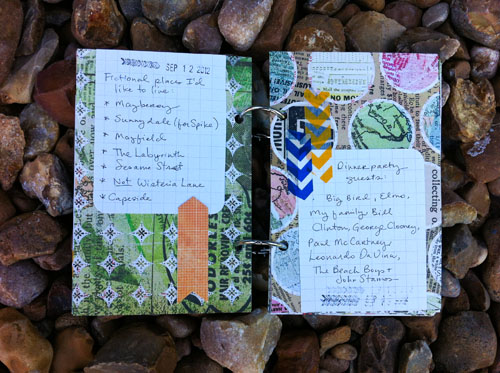 SEP 12 2012
Fictional places I'd
like to live:
* Mayberry
* Sunnydale (for Spike)
* Mayfield
* The Labyrinth
* Sesame Street
* Not Wisteria Lane
* Capeside
Dinner party
guests:
Big Bird, Elmo,
My family, Bill
Clinton, George Clooney,
Paul McCartney,
Leonardo Da Vinci,
The Beach Boys +
John Stamos
collecting